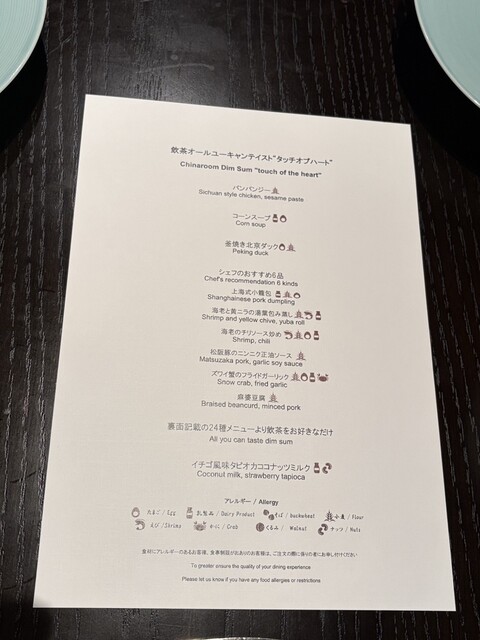 飲茶オールユーキャンテイスト"タッチオブハート"
Chinaroom Dim Sum "touch of the heart"
バンバンジー
Sichuan style chicken, sesame paste
コーンスープ
Corn soup
釜焼き北京ダック
Peking duck
シェフのおすすめ6品
Chef's recommendation 6 kinds
上海式小籠包
Shanghainese pork dumpling
海老と黄ニラの湯葉包み蒸し
Shrimp and yellow chive, yuba roll
海老のチリソース炒め
Shrimp, chili
松阪豚のニンニク正油ソース
Matsuzaka pork, garlic soy sauce
ズワイ蟹のフライドガーリック
Snow crab, fried garlic
麻婆豆腐
Braised beancurd, minced pork
裏面記載の24種メニューより飲茶をお好きなだけ
All you can taste dim sum
イチゴ風味タピオカココナッツミルク
Coconut milk, strawberry tapioca
アレルギー / Allergy
たまご / Egg 乳製品 / Dairy Product そば / buckwheat 小麦 / Flour
えび / Shrimp かに / Crab くるみ / Walnut ナッツ / Nuts
食材にアレルギーのあるお客様、食事制限がおありのお客様は、ご注文の際に係りの者にお申し付けください
To greater ensure the quality of your dining experience
Please let us know if you have any food allergies or restrictions